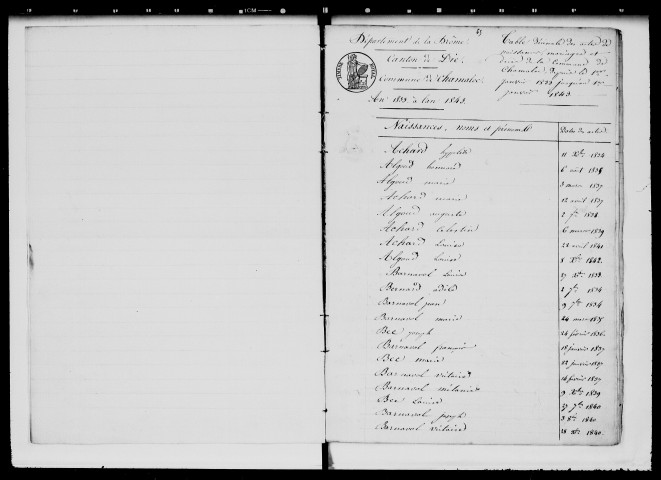 Département de la Drôme.
Canton de Die.
Commune de Chamaloc.
An 1833 à l'an 1843.
Table décennale des actes de
naissances, mariages et
décès de la Commune de
Chamaloc depuis le 1er
janvier 1833 jusqu'au 1er
janvier 1843.
Naissances, noms et prénoms
Dates des actes
Achard hypolite 11 Xbre 1834
Algoud 6 avril 1838
Algoud marie 3 mars 1837
Achard marie 12 avril 1837
Algoud auguste 2 1838
Achard Célestin 6 mars 1839
Achard Louise 22 avril 1841
Algoud Louise 8 Xbre 1842.
Barnaval Louise 27 Xbre 1833
Bernard adèle 2 7bre 1834
Barnaval jean 9 7bre 1834
Barnaval marie 24 mars 1835
Bec joseph 24 février 1836.
Barnaval françois 18 janvier 1837
Bec marie 22 janvier 1837
Barnaval 14 février 1837
Barnaval mélanie 9 Xbre 1839
Bec Louise 27 7bre 1840
Barnaval joseph 3 8bre 1840
Barnaval 28 Xbre 1840.